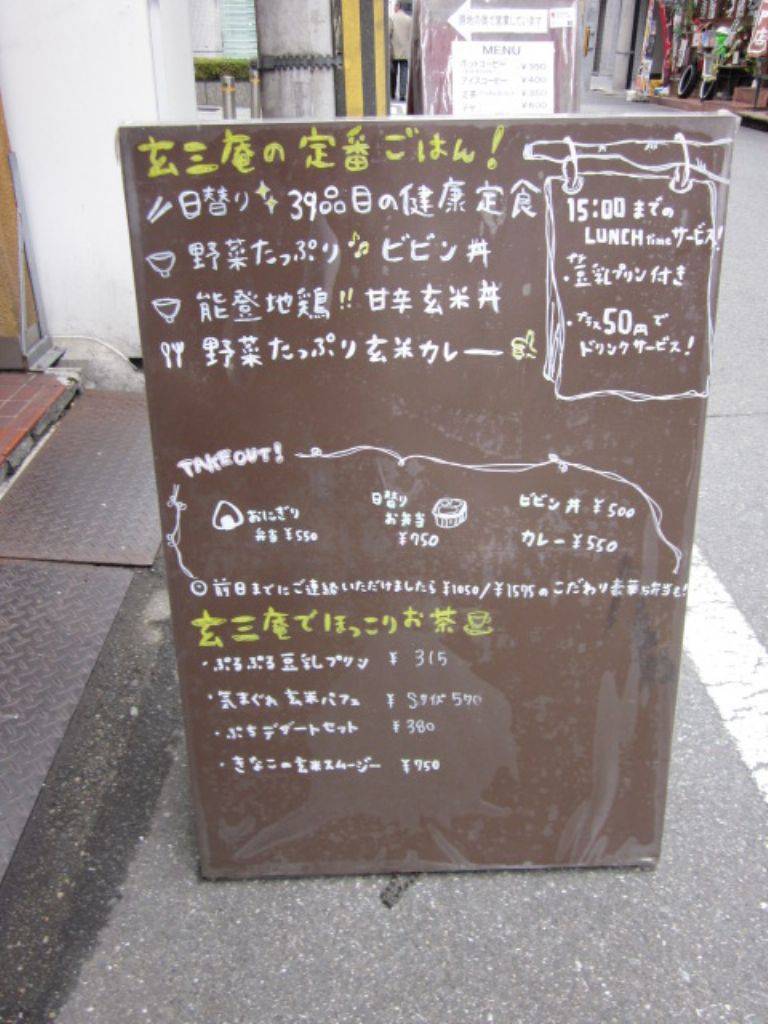 路地の奥で営業しています
MENU
ホットコーヒー ¥350
アイスコーヒー ¥400
玄三庵の定番ごはん!
日替り 39品目の健康定食
野菜たっぷり♪ ビビン丼
能登地鶏!! 甘辛玄米丼
野菜たっぷり玄米カレー
15:00 までの
LUNCH timeサービス!
・豆乳プリン付き
・プラス50円で
ドリンクサービス!
TAKE OUT!
おにぎり
弁当 ¥550
日替り
お弁当
¥750
ビビン丼 ¥500
カレー ¥550
◎ 前日までにご連絡いただけましたら ¥1050/¥1575のこだわり豪華お弁当も!
玄三庵でほっこりお茶
・ぷるぷる豆乳プリン ¥ 315
・気まぐれ玄米パフェ ¥ Sサイズ 570
・ぷちデザートセット ¥380
・きなこの玄米スムージー ¥750